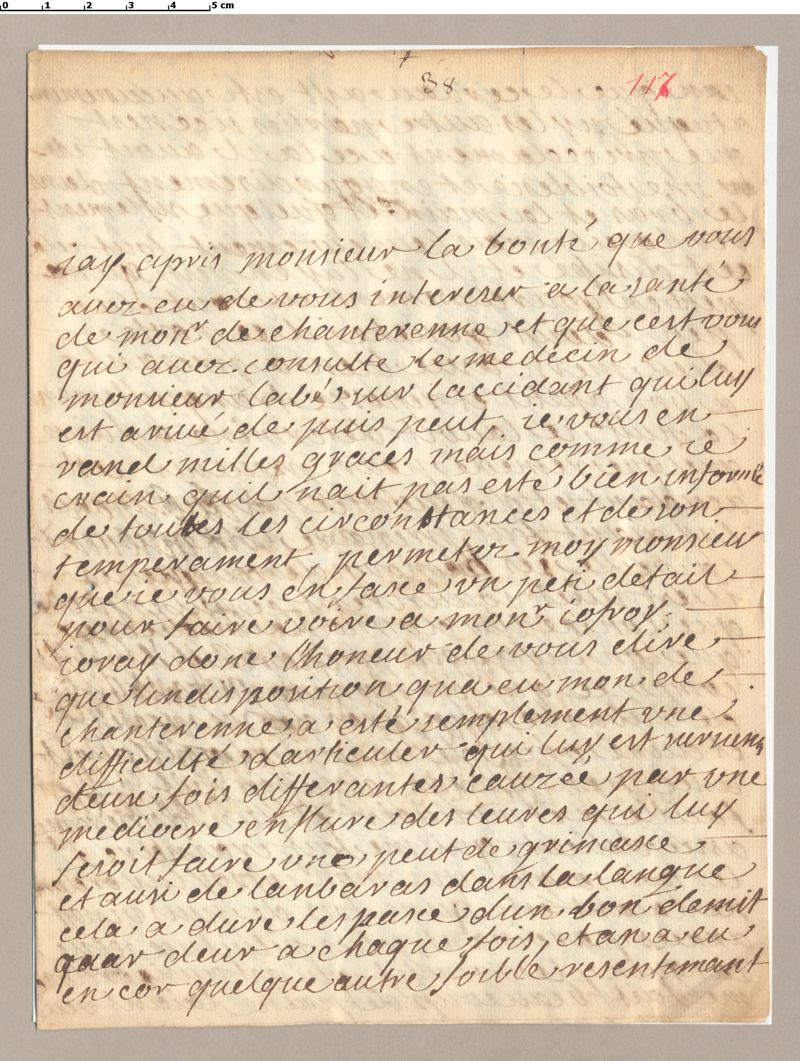 0 1 2 3 4 5 cm
38
117
iay apris monsieur la bonté que vous
auez eu de vous intereser a la santé
de monr de chanterenne et que cest vous
qui auez consulte le medecin de
monsieur labé sur laccidant qui luy
est ariué de puis peut, ie vous en
rand milles graces mais comme ie
crain quil nait pas esté bien informé
de toutes les circonstances et de son
temperament, permetez moy monsieur
que ie vous en fasce un peti detail
pour faire voire a monr iofroy.
ioray donc lhoneur de vous dire
que lindisposition qua eu mon de
chanterenne a esté semplement une
difficulté darticuler qui luy est survenu
deux fois differantes cauzéé par une
mediocre enflure des leures qui luy
fesoit faire une peut de grimasce
et ausi de lanbaras dans la langue
cela a dure lespasce dun bon demit
quar deur a chaque fois, et an a eu
en cor quelque autre foible resentimant